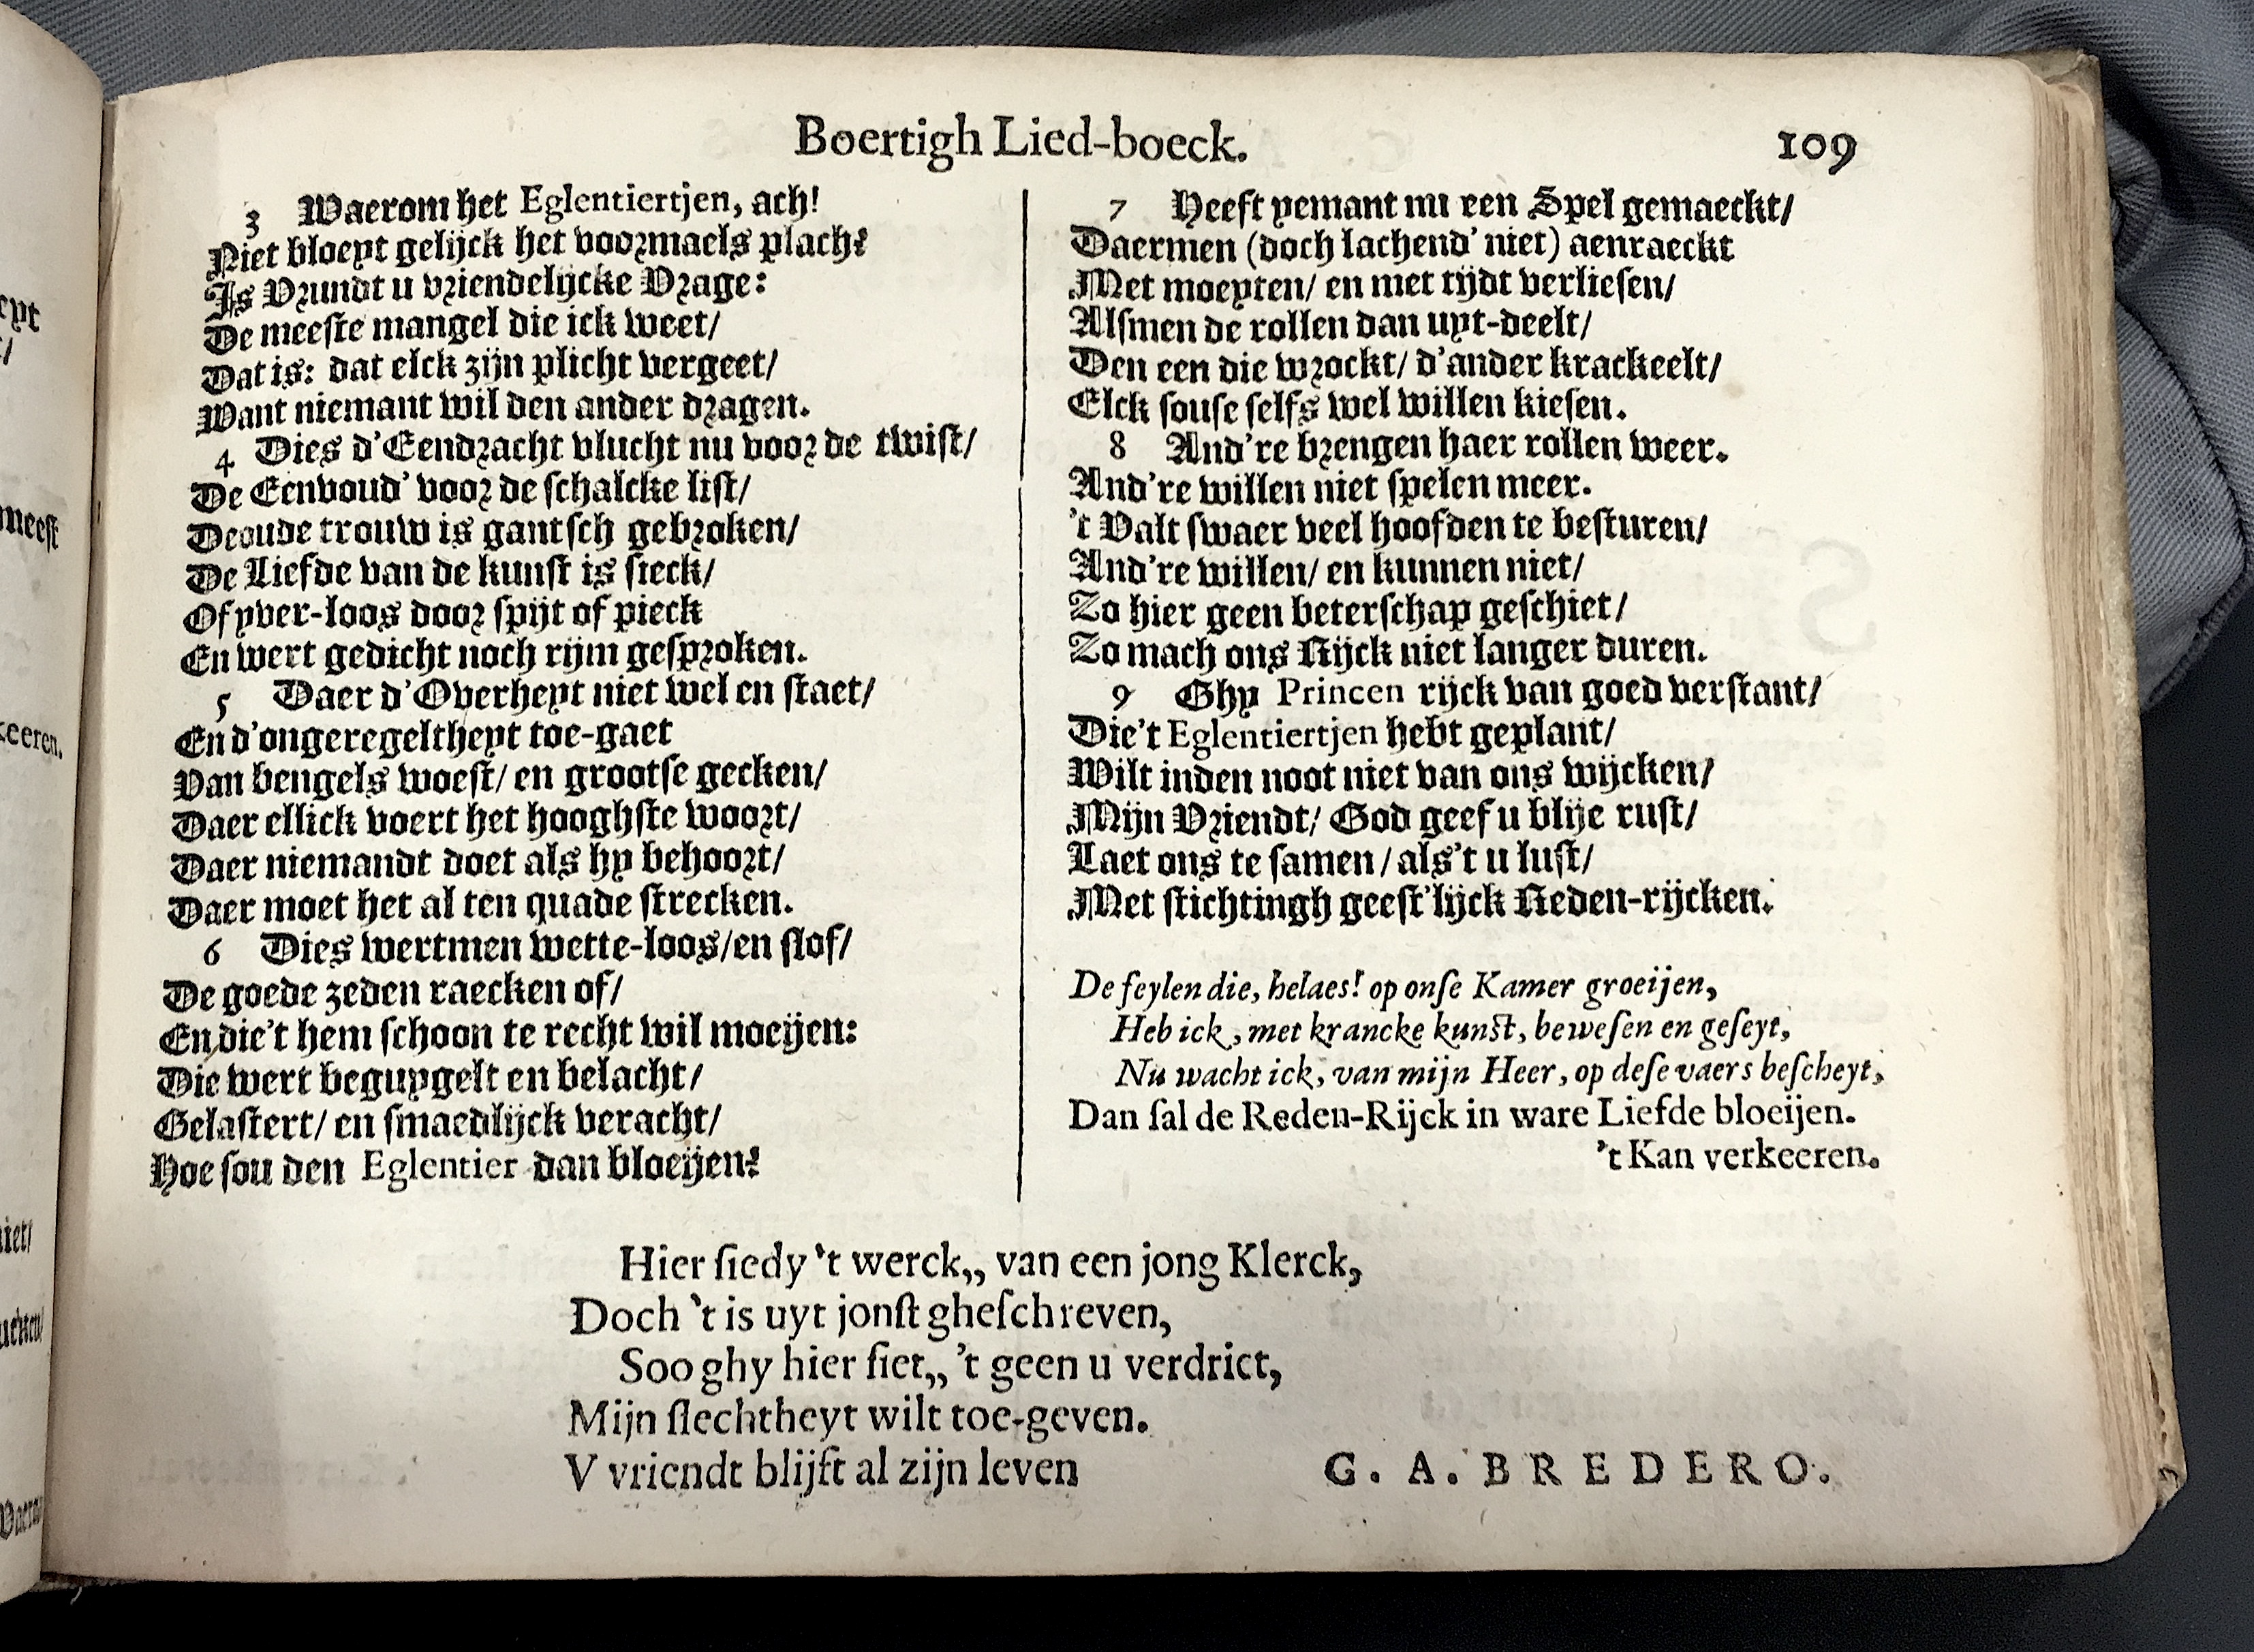 Boertigh Lied-boeck.
109
3 Waerom het Eglentiertjen, ach!
Niet bloeyt gelijck het voormaels plach?
Is Vrundt u vriendelijcke Vrage:
De meeste mangel die ick weet/
Dat is: dat elck zijn plicht vergeet/
Want niemant wil den ander dragen.
4 Dies d'Eendracht vlucht nu voor de twist/
De Eenvoud' voor de schalcke list/
De oude trouw is gantsch gebroken/
De Liefde van de kunst is sieck/
Of yver-loos door spijt of pieck
En wert gedicht noch rijm gesproken.
5 Daer d'Overheyt niet wel en staet/
En d'ongeregeltheyt toe-gaet
Van bengels woest/ en grootse gecken/
Daer ellick voert het hooghste woort/
Daer niemandt doet als hy behoort/
Daer moet het al ten quade strecken.
6 Dies wertmen wette-loos/en slof/
De goede zeden raecken of/
En die't hem schoon te recht wil moeijen:
Die wert beguygelt en belacht/
Gelastert/ en smaedlijck veracht/
Hoe sou den Eglentier dan bloeijen?
7 Heeft yemant nu een Spel gemaeckt/
Daermen (doch lachend' niet) aenraeckt
Met moeyten/ en met tijdt verliesen/
Alsmen de rollen dan uyt-deelt/
Den een die wrockt/ d'ander krackeelt/
Elck souse selfs wel willen kiesen.
8 And're brengen haer rollen weer.
And're willen niet spelen meer.
't Valt swaer veel hoofden te besturen/
And're willen/ en kunnen niet/
Zo hier geen beterschap geschiet/
Zo mach ons Rijck niet langer duren.
9 Ghy Princen rijck van goed verstant/
Die't Eglentiertjen hebt geplant/
Wilt inden noot niet van ons wijcken/
Mijn Vriendt/ God geef u blije rust/
Laet ons te samen/als't u lust/
Met stichtingh geest'lijck Reden-rijcken.
De feylen die, helaes! op onse Kamer groeijen,
Heb ick, met krancke kunst, bewesen en geseyt,
Nu wacht ick, van mijn Heer, op dese vaers bescheyt,
Dan sal de Reden-Rijck in ware Liefde bloeijen.
't Kan verkeeren.
Hier siedy 't werck,, van een jong Klerck,
Doch 't is uyt jonst gheschreven,
Soo ghy hier siet,, 't geen u verdriet,
Mijn slechtheyt wilt toe-geven.
V vriendt blijft al zijn leven
G. A. BREDERO.